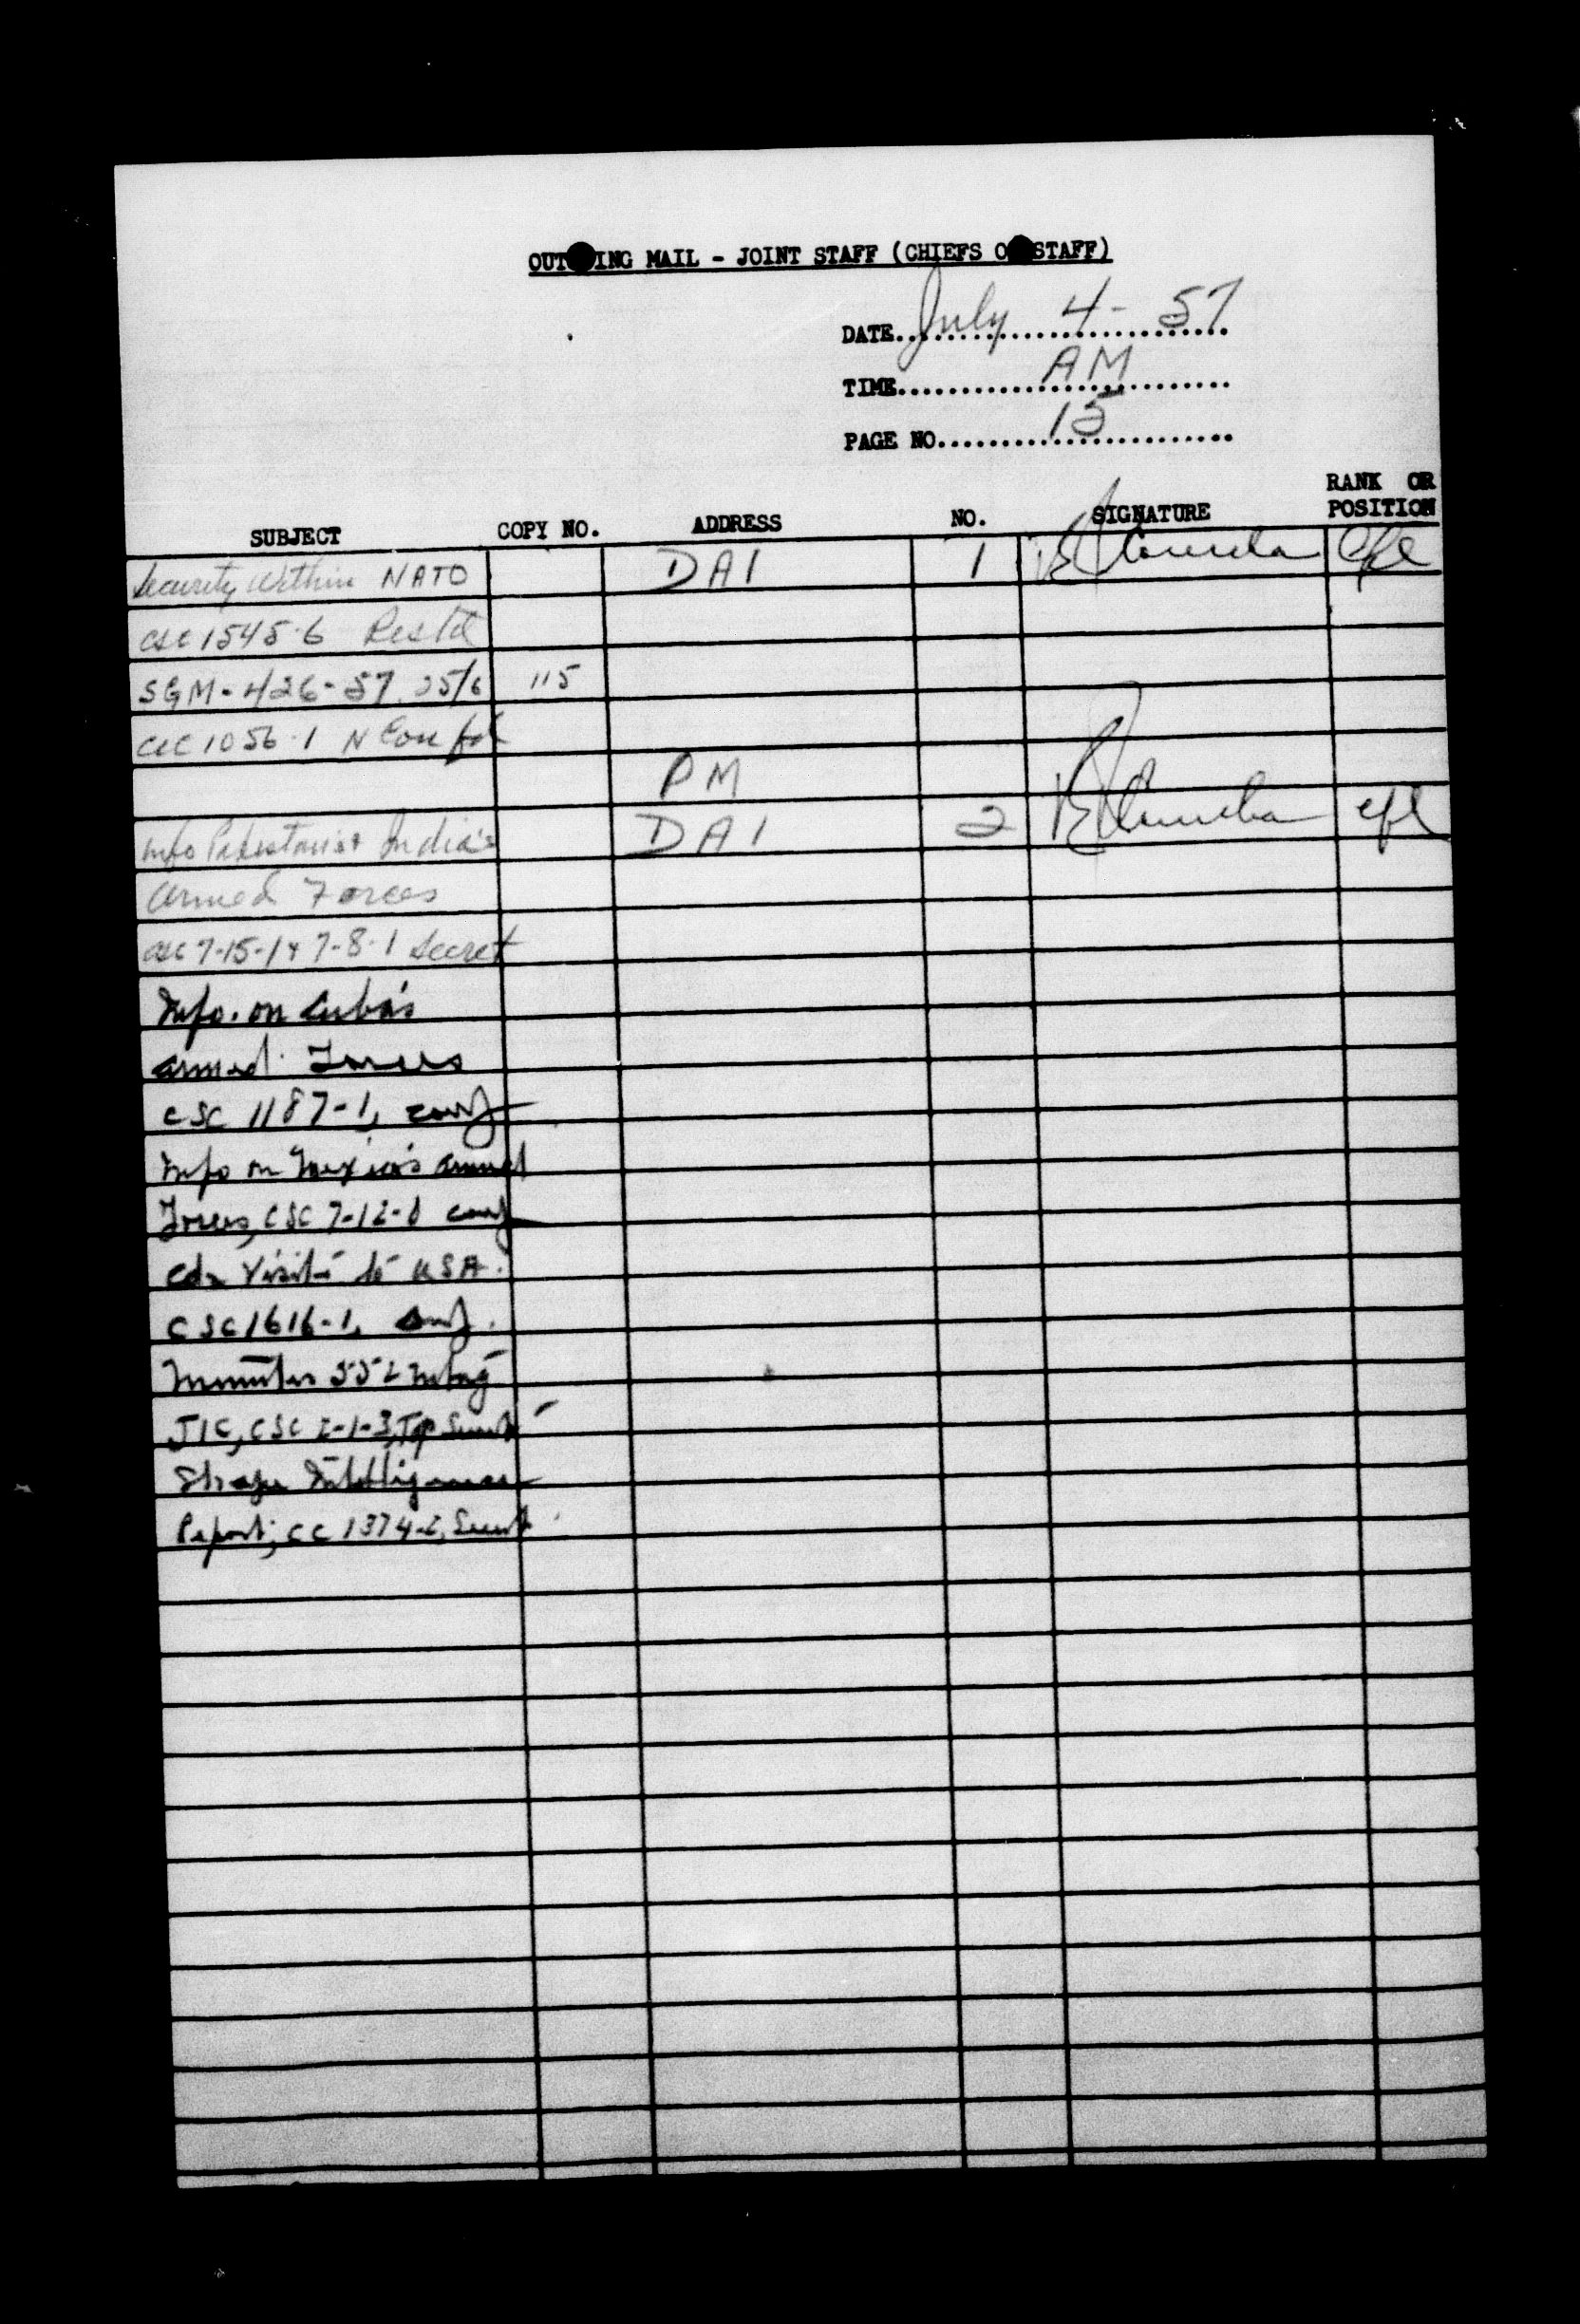 OUT ING MAIL - JOINT STAFF (CHIEFS O STAFF)
DATE July 4 - 57
TIME AM
PAGE NO. 15
SUBJECT COPY NO. ADDRESS NO. SIGNATURE RANK OR POSITION
Security Within NATO DAI 1 Cpl
CSC 1545-6 Rest'd
SGM-426-57 25/6 115
CSC 1056-1 N Conf
PM
Info Pakistani & India's DAI 2 Cpl
Armed Forces
CSC 7-15-1 & 7-8-1 Secret
Info. on Cuba's
armed Forces
CSC 1187-1, conf
Info on Mexico's armed
Forces, CSC 7-12-1 conf
Cdn Visits to USA.
CSC 1616-1, conf.
Minutes 552 mtng
JIC, CSC 2-1-3, Top Secret
Shape Intelligence
Report; CC 1374-2, Secret